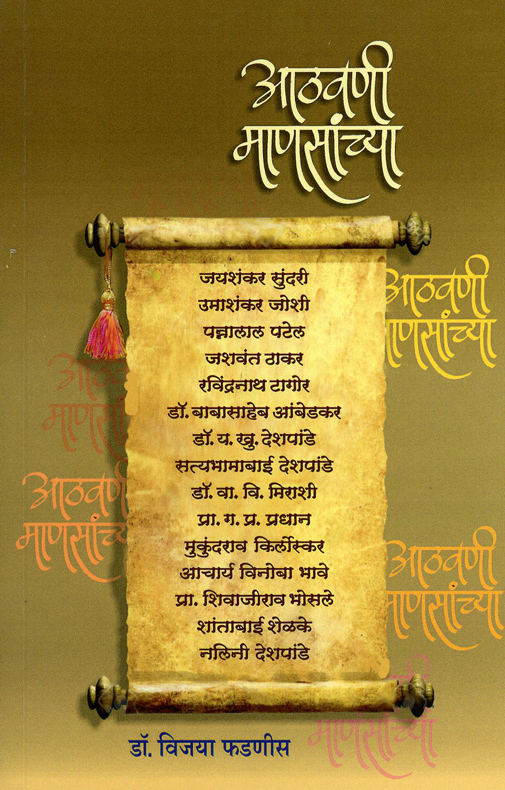 आठवणी
माणसांच्या
जयशंकर सुंदरी
उमाशंकर जोशी
पन्नालाल पटेल
जशवंत ठाकर
रविंद्रनाथ टागोर
डॉ. बाबासाहेब आंबेडकर
डॉ. य. खु. देशपांडे
सत्यभामाबाई देशपांडे
डॉ. वा. वि. मिराशी
प्रा. ग. प्र. प्रधान
मुकुंदराव किर्लोस्कर
आचार्य विनोबा भावे
प्रा. शिवाजीराव भोसले
शांताबाई शेळके
नलिनी देशपांडे
आठवणी
माणसांच्या
आठवणी
माणसांच्या
आठवणी
माणसांच्या
आठवणी
माणसांच्या
माणसांच्या
डॉ. विजया फडणीस